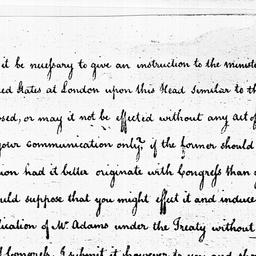 it be necessary to give an instruction to the ministe
ed States at London upon this Head similar to th
osed, or may it not be effected without any act of
your communication only, if the former should
ion had it better originate with Congress than
uld suppose that you might effect it and induce
lication of Mr. Adams under the Treaty without
Congress, I submit it however to you and